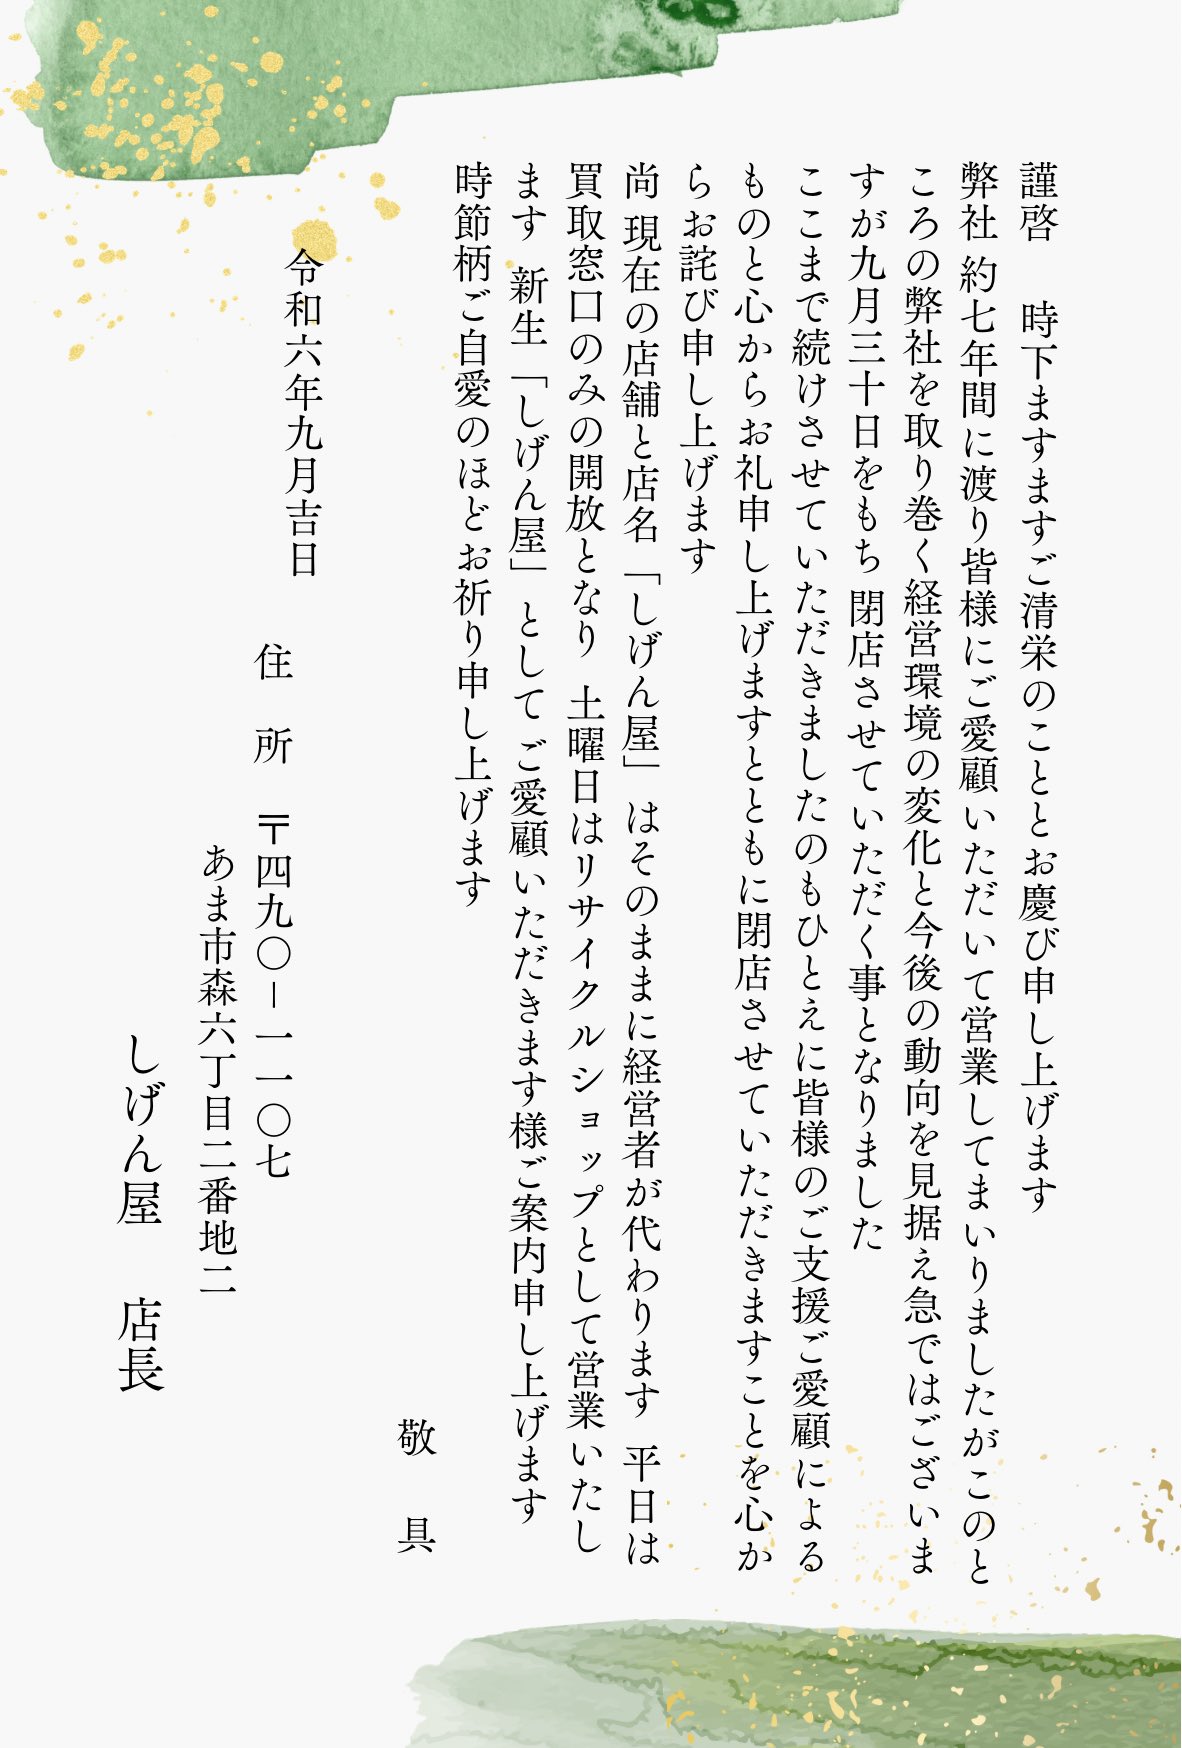 謹啓　時下ますますご清栄のこととお慶び申し上げます
弊社 約七年間に渡り皆様にご愛顧いただいて営業してまいりましたがこのと
ころの弊社を取り巻く経営環境の変化と今後の動向を見据え急ではございま
すが九月三十日をもち 閉店させていただく事となりました
ここまで続けさせていただきましたのもひとえに皆様のご支援ご愛顧による
ものと心からお礼申し上げますとともに閉店させていただきますことを心か
らお詫び申し上げます
尚 現在の店舗と店名「しげん屋」はそのままに経営者が代わります 平日は
買取窓口のみの開放となり 土曜日はリサイクルショップとして営業いたし
ます 新生「しげん屋」としてご愛顧いただきます様ご案内申し上げます
時節柄ご自愛のほどお祈り申し上げます
敬　具
令和六年九月吉日
住　所　〒四九〇－一一〇七
あま市森六丁目二番地二
しげん屋　店長